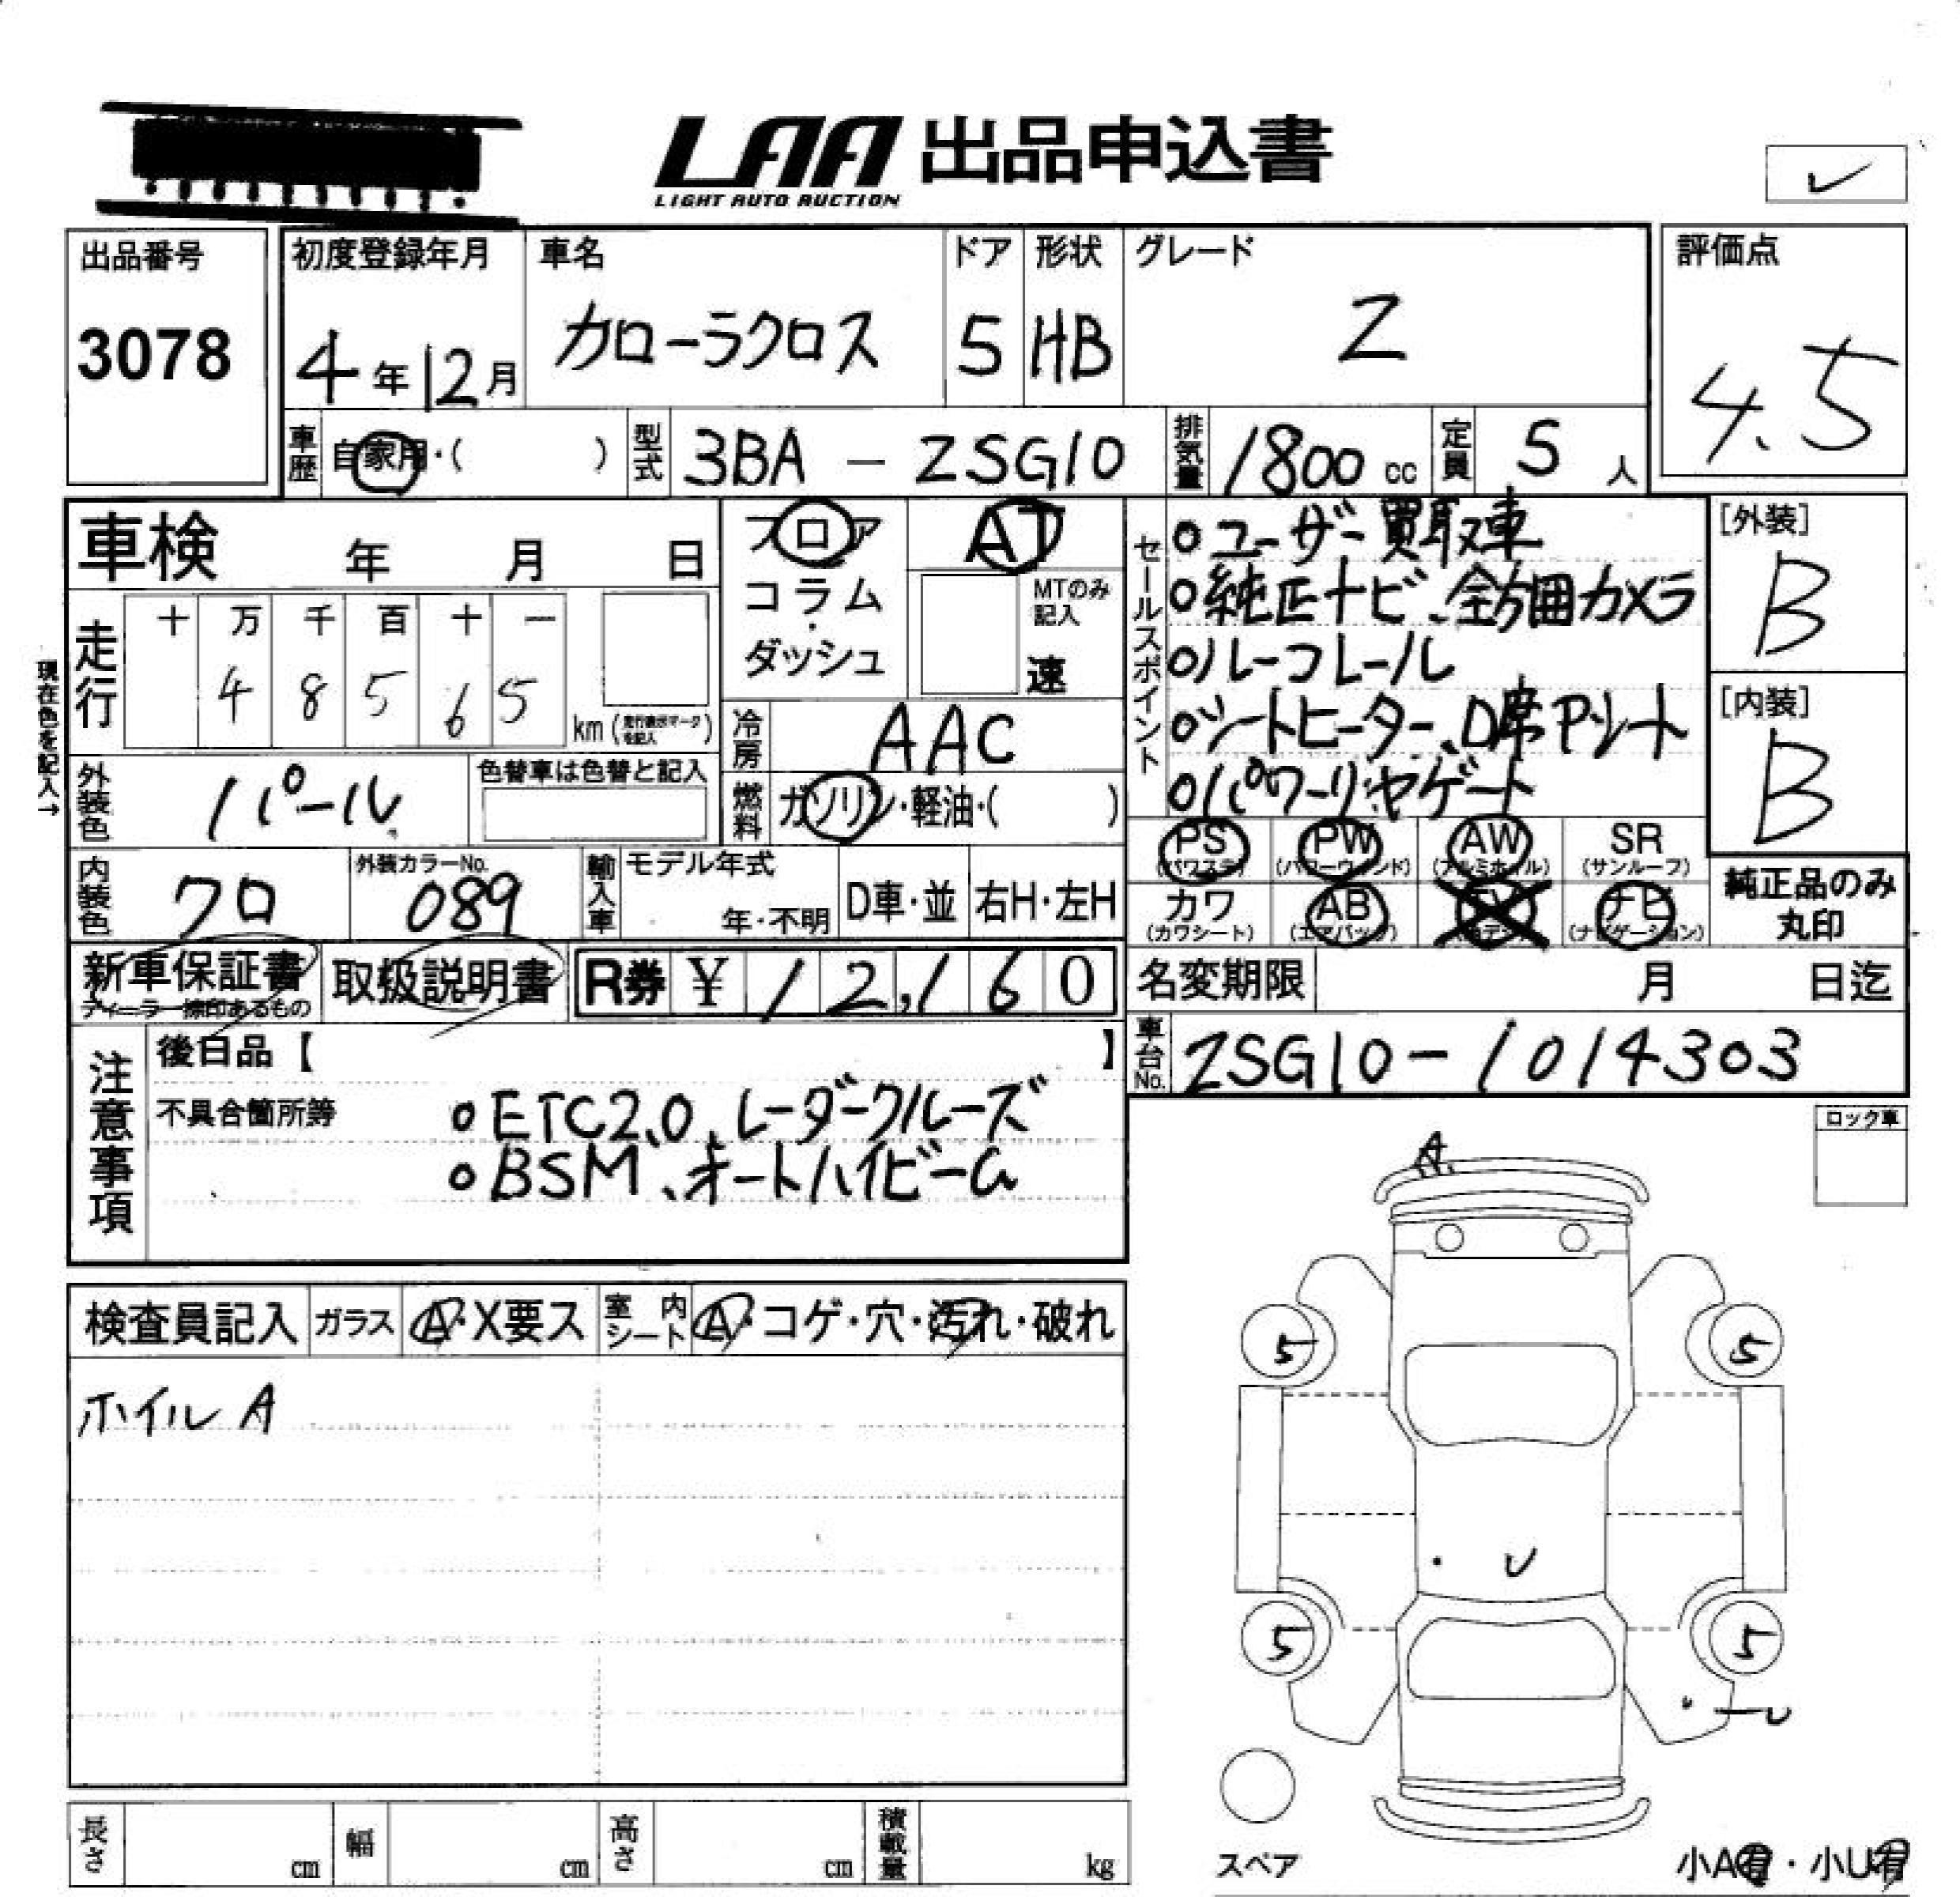 LAA 出品申込書
LIGHT AUTO AUCTION
レ
出品番号
3078
初度登録年月
4年12月
車名
カローラクロス
ドア
5
形状
HB
グレード
Z
評価点
4.5
車歴 自家用・( )
型式 3BA - ZSG10
排気量 1800 cc
定員 5 人
車検 年 月 日
フロア
コラム
・
ダッシュ
AT
MTのみ記入
速
セールスポイント
○ユーザー買取車
○純正ナビ、全方囲カメラ
○ルーフレール
○シートヒーター、D席Pシート
○パワーリヤゲート
[外装]
B
[内装]
B
現在色を記入→
走行
十 万 千 百 十 一
4 8 5 6 5
km (走行表示マークを記入)
冷房 AAC
外装色 パール
色替車は色替と記入
燃料 ガソリン・軽油・( )
PS (パワステ)
PW (パワーウィンド)
AW (アルミホイル)
SR (サンルーフ)
カワ (カワシート)
AB (エアバッグ)
ナビ (ナビゲーション)
純正品のみ
丸印
内装色 クロ
外装カラーNo.
089
輸入車
モデル年式
年・不明
D車・並
右H・左H
新車保証書
ディーラー捺印あるもの
取扱説明書
R券 ¥ 12,160
名変期限 月 日迄
車台No. ZSG10-1014303
注意事項
後日品【 】
不具合箇所等
○ETC2.0、レーダークルーズ
○BSM、オートハイビーム
ロック車
A
検査員記入
ガラス A・X要ス
室内シート A・コゲ・穴・汚れ・破れ
ホイル A
5 5
U
5 5
U
スペア
小A有・小U有
長さ cm
幅 cm
高さ cm
積載量 kg